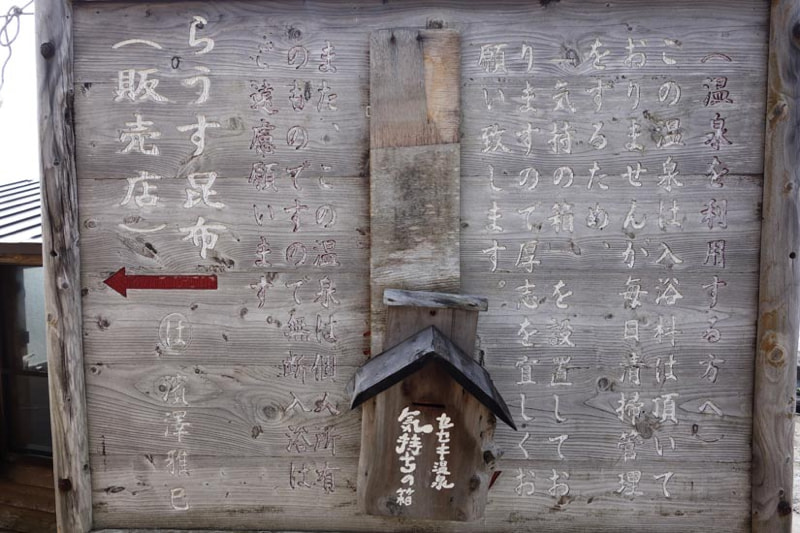 （温泉を利用する方へ）
この温泉は入浴料は頂いて
おりませんが毎日清掃管理
をするため、
「気持の箱」を設置してお
りますので厚志を宜しくお
願い致します。
セセキ温泉
気持ちの箱
また、この温泉は個人所有
のものですので無断入浴は
ご遠慮願います
らうす昆布
（販売店）
濱澤雅巳